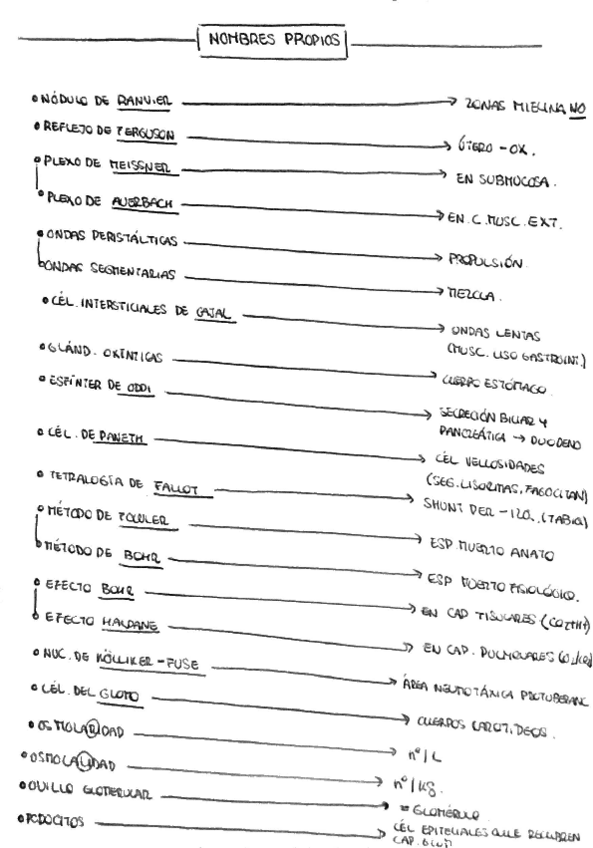 NOMBRES PROPIOS
• NÓDULO DE RANVIER → ZONAS MIELINA NO
• REFLEJO DE FERGUSON → ÚTERO - OX.
• PLEXO DE MEISSNER → EN SUBMUCOSA.
• PLEXO DE AUERBACH → EN C. MUSC. EXT.
• ONDAS PERISTÁLTICAS → PROPULSIÓN.
• ONDAS SEGMENTARIAS → MEZCLA.
• CÉL. INTERSTICIALES DE CAJAL → ONDAS LENTAS
(MUSC. LISO GASTROINT.)
• GLÁND. OXÍNTICAS → CUERPO ESTÓMAGO.
• ESFÍNTER DE ODDI → SECRECIÓN BILIAR Y
PANCREÁTICA → DUODENO
• CÉL. DE PANETH → CÉL VELLOSIDADES
(SEG. LISOZIMAS, FAGOCITAN)
• TETRALOGÍA DE FALLOT → SHUNT DER - IZQ.
• MÉTODO DE FOWLER → ESP. MUERTO ANATO
• MÉTODO DE BOHR → ESP MUERTO FISIOLÓGICO.
• EFECTO BOHR → EN CAP TISULARES
• EFECTO HALDANE → EN CAP. PULMONARES
• NUC. DE KÖLLIKER - FUSE → ÁREA NEUMOTÁXICA PROTUBERANC
• CÉL. DEL GLOMO → CUERPOS CAROTIDEOS.
• OSMOLARIDAD → nº/L
• OSMOLALIDAD → nº/kg.
• OVILLO GLOMERULAR → = GLOMÉRULO
• PODOCITOS → CÉL EPITELIALES QUE RECUBREN
CAP. GLOM